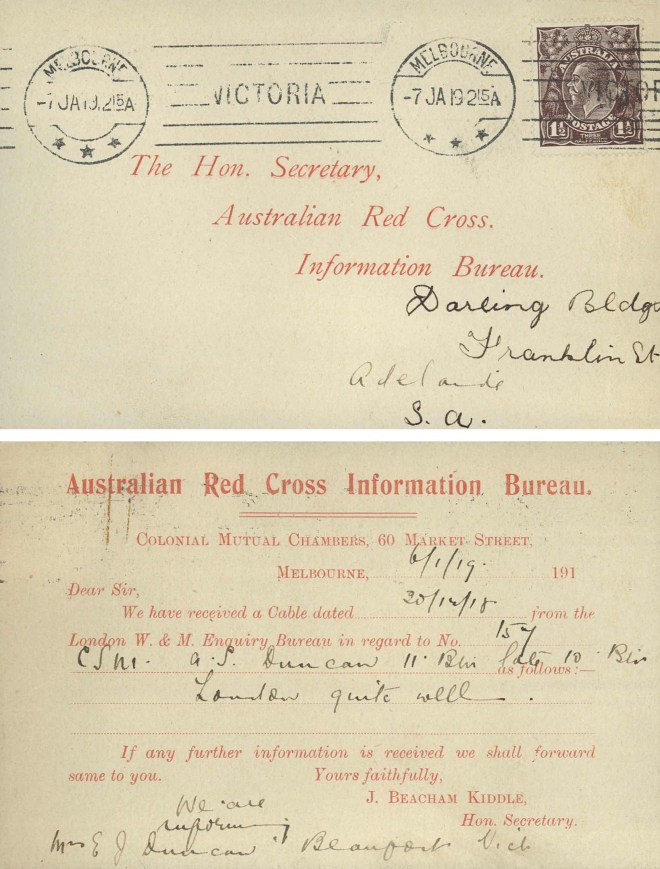 MELBOURNE
-7 JA 19. 2 15 A
VICTORIA
MELBOURNE
-7 JA 19 2 15 A
AUSTRALIA
1½ 1½
POSTAGE
THREE HALFPENCE
The Hon. Secretary,
Australian Red Cross.
Information Bureau.
Darling Bldgs
Franklin St
Adelaide
S.A.
Australian Red Cross Information Bureau.
COLONIAL MUTUAL CHAMBERS, 60 MARKET STREET,
MELBOURNE, 6/1/19. 191
Dear Sir,
We have received a Cable dated 30/12/18 from the
London W. & M. Enquiry Bureau in regard to No. 157
CSM. A.S. Duncan 11 Btn late 10 Btn as follows:—
London quite well.
If any further information is received we shall forward
same to you. Yours faithfully,
J. BEACHAM KIDDLE,
Hon. Secretary.
We are
informing
Mrs E J Duncan Beaufort Vict